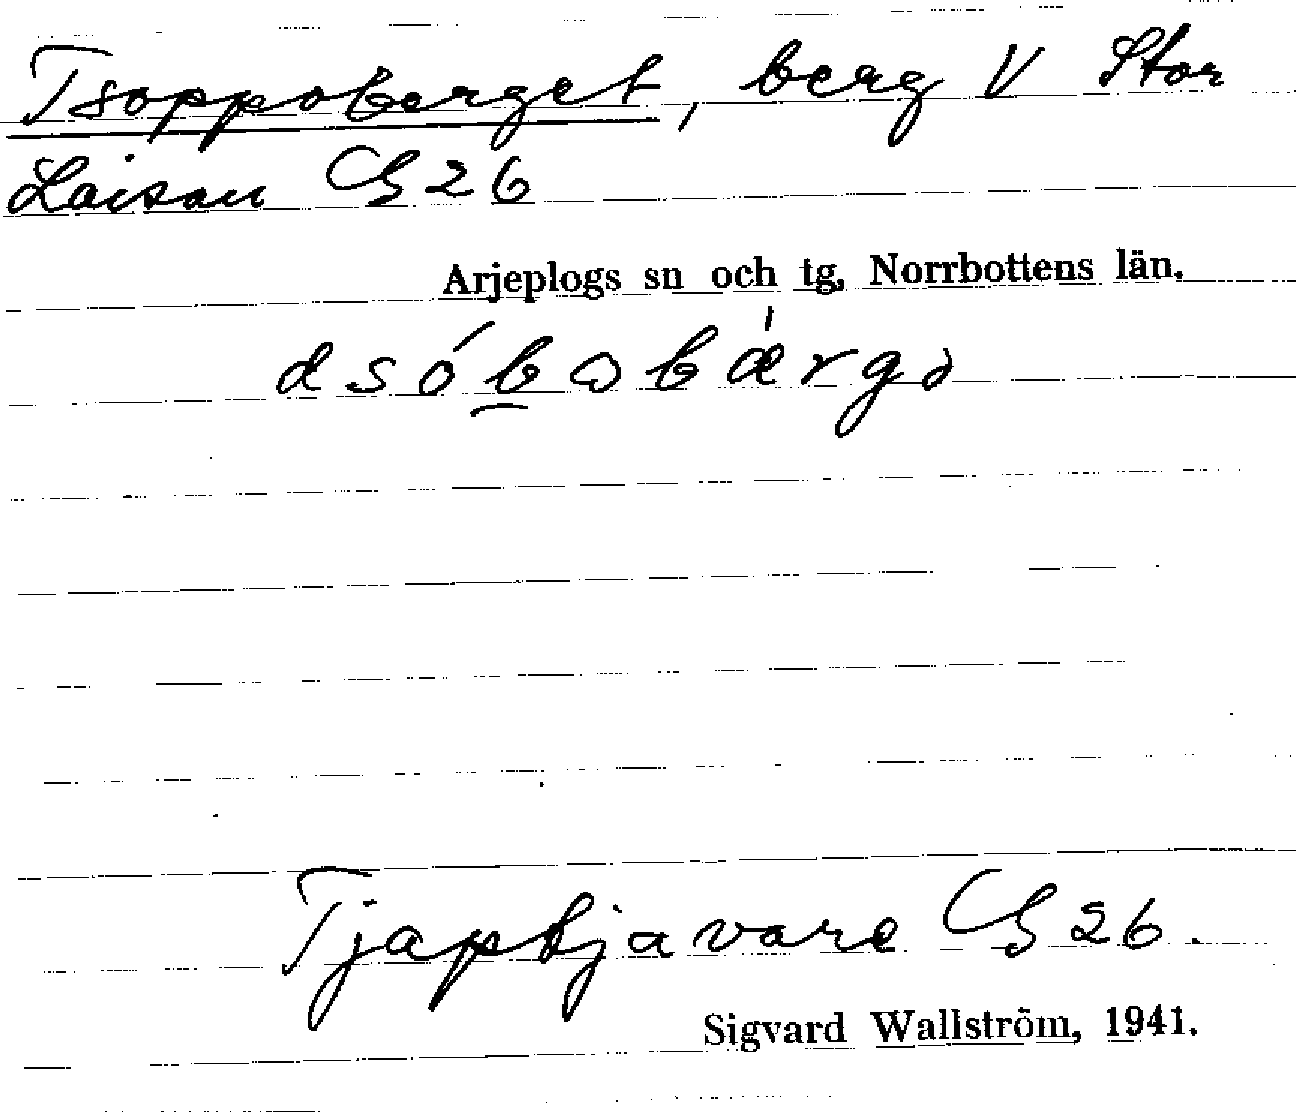 Tsoppoberget, berg V Stor
Laisan GS 26
Arjeplogs sn och tg, Norrbottens län.
Tjaptjavare GS 26.
Sigvard Wallström, 1941.